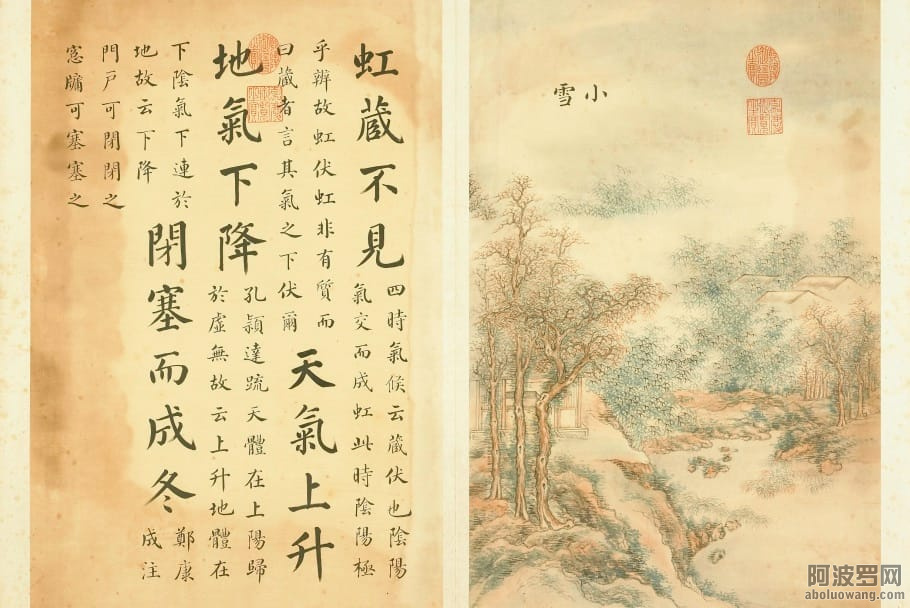 小雪
虹藏不見
四時氣候云藏伏也陰陽
氣交而成虹此時陰陽極
乎辨故虹伏虹非有質而
曰藏者言其氣之下伏爾
天氣上升
地氣下降
孔穎達疏天體在上陽歸
於虛無故云上升地體在
下陰氣下連於
地故云下降
閉塞而成冬
鄭康
成注
門戶可閉閉之
窓牖可塞塞之
阿波罗网
aboluowang.com